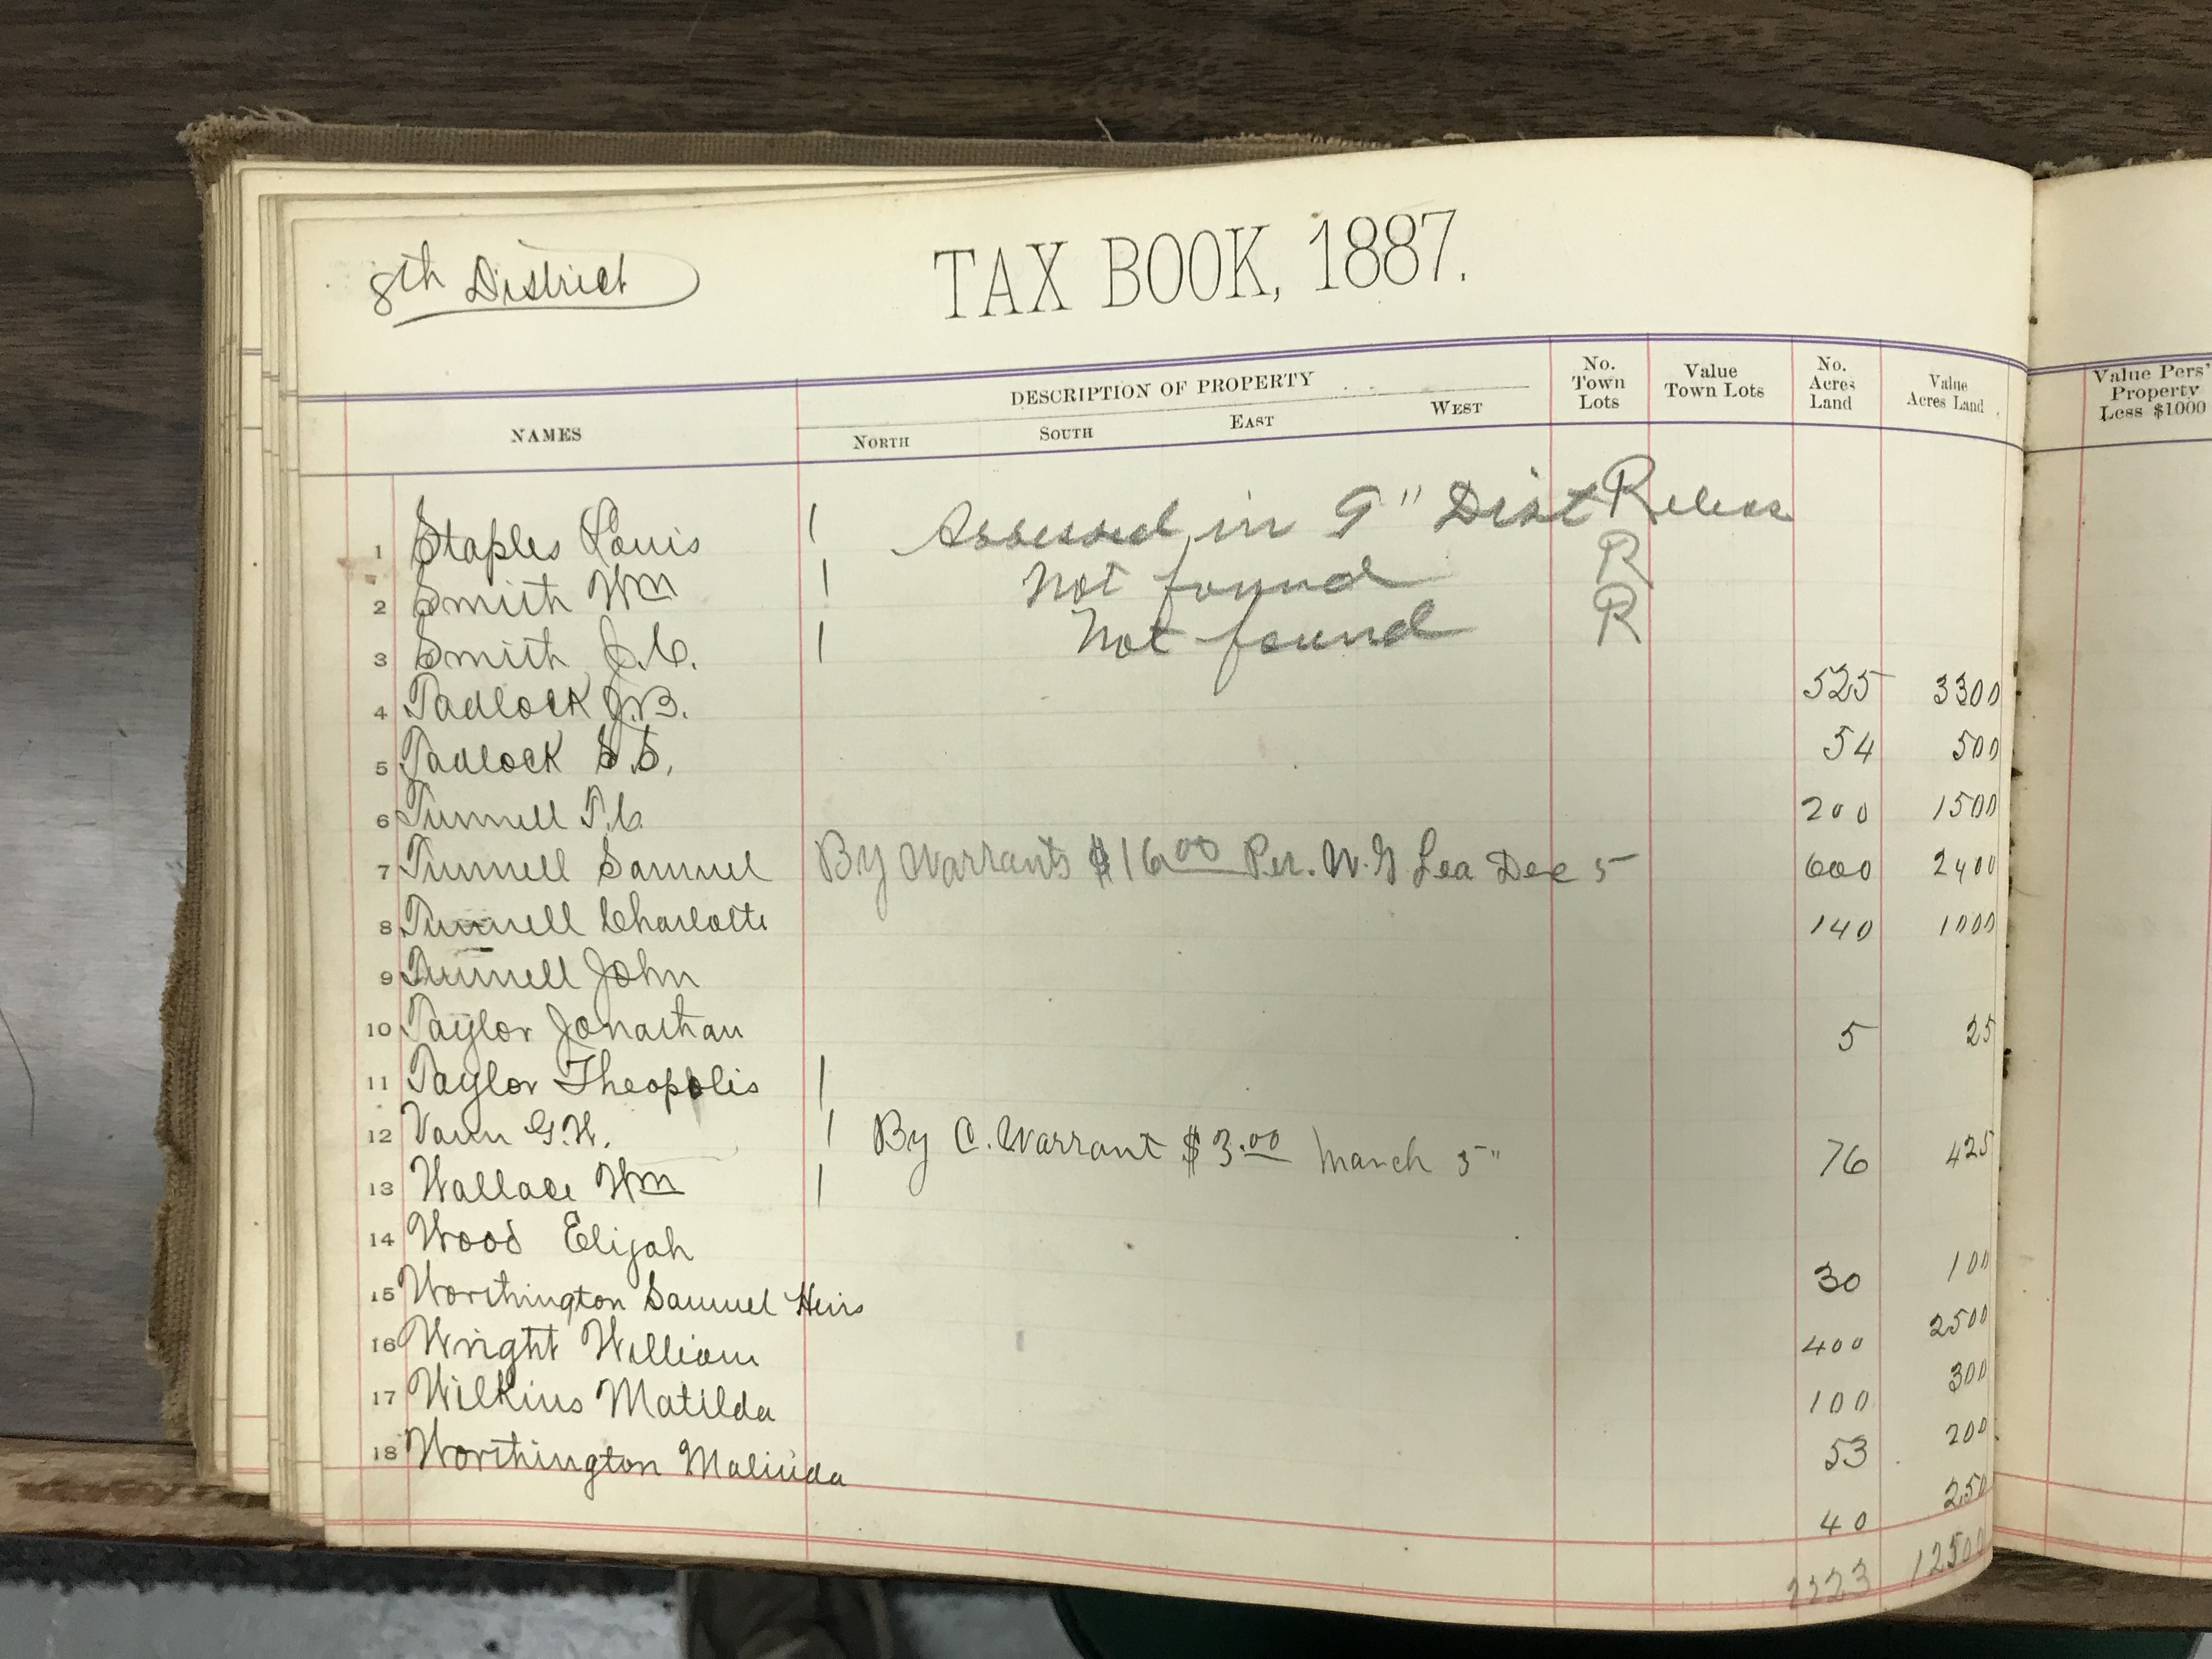 8th District
TAX BOOK, 1887.
NAMES
DESCRIPTION OF PROPERTY
NORTH SOUTH EAST WEST
No. Town Lots
Value Town Lots
No. Acres Land
Value Acres Land
Value Pers' Property Less $1000
1 Staples Louis 1 Assessed in 9" Dist Releas
2 Smith Wm 1 Not found R
3 Smith J.C. 1 Not found R
4 Tadlock J.B. 525 3300
5 Tadlock S.S. 54 500
6 Tunnell T.C. 200 1500
7 Tunnell Samuel By Warrants $16.00 Per. W.G Lea Dec 5 600 2400
8 Tunnell Charlotte 140 1000
9 Tunnell John
10 Taylor Jonathan 5 25
11 Taylor Theopolis 1
12 Vann G.W. 1 By C. Warrant $3.00 March 5" 76 425
13 Wallace Wm 1
14 Wood Elijah 30 100
15 Worthington Samuel Heirs 400 2500
16 Wright William 100 300
17 Wilkins Matilda 53 200
18 Worthington Malinda 40 250
2223 12500